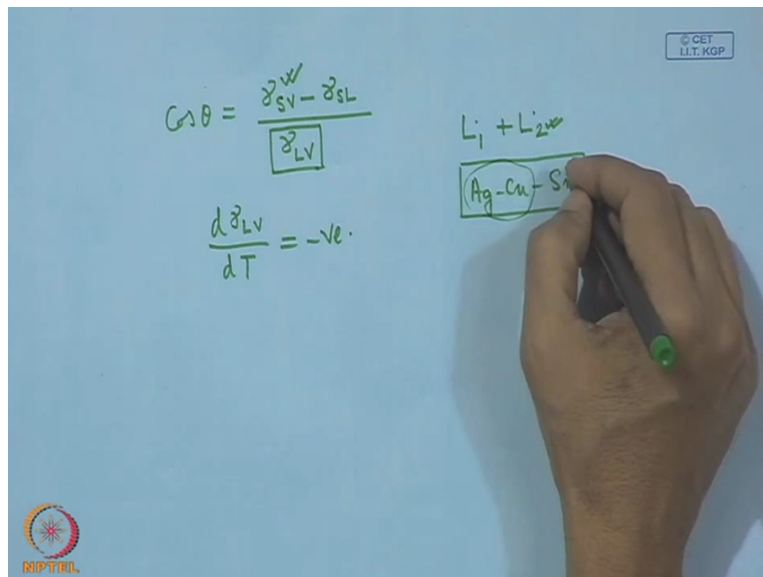 © CET
I.I.T. KGP
cosθ = (γSV - γSL) / γLV
L1 + L2
Ag-Cu-
dγLV / dT = -ve.
NPTEL